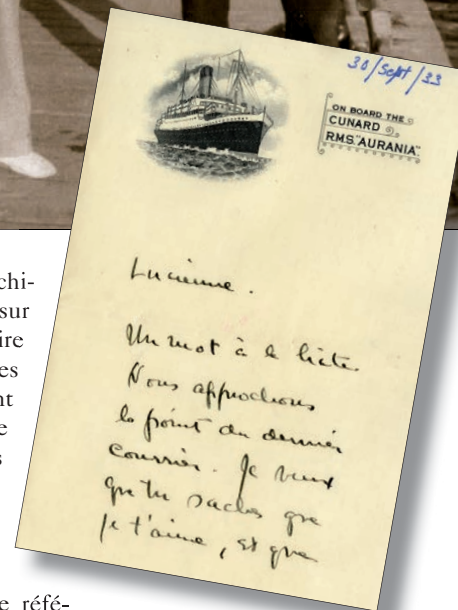 30/Sept/33
ON BOARD THE
CUNARD
R.M.S. "AURANIA"
Lucienne.
Un mot à la hâte
Nous approchons
le point du dernier
courrier. Je veux
que tu saches que
je t'aime, et que
chi-
sur
ire
es
nt
e
s
e réfé-